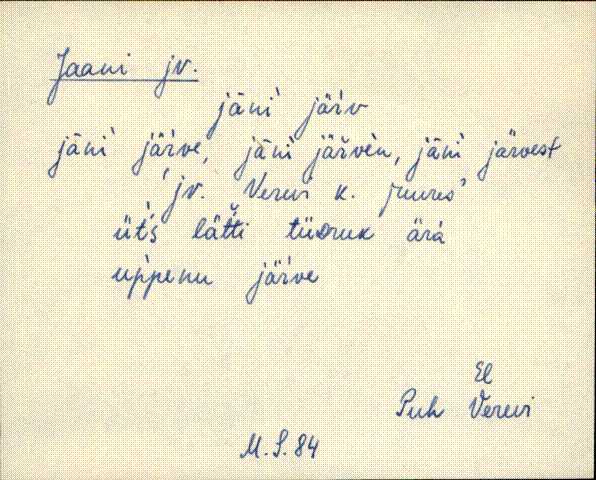 Jaani jv.
jäni järv
jäni järve, jäni järven, jäni järvest
'jv. Verevi k. juures'
üt's lätti tüdruk ärä
uppenu järve
El
Puh Verevi
M.S. 84